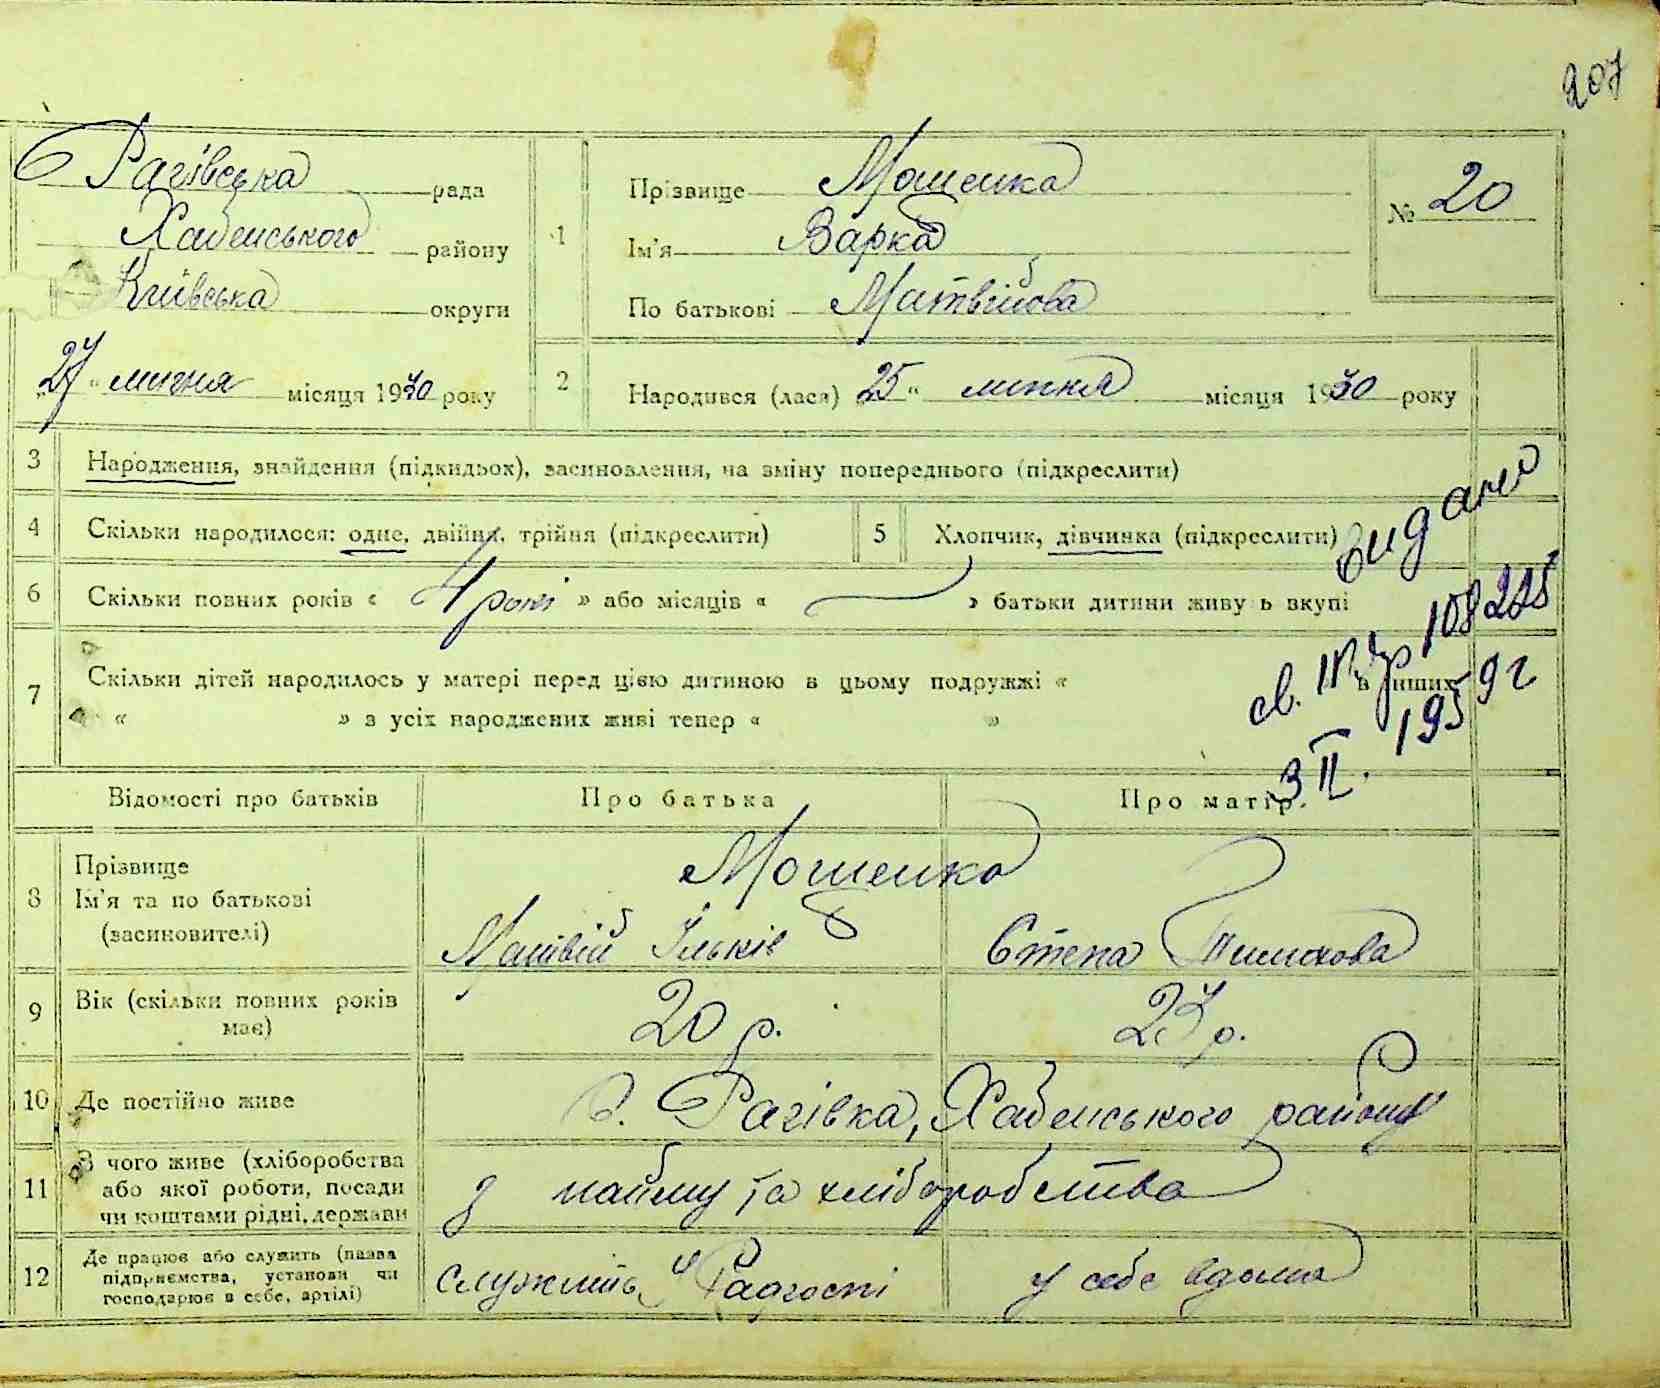 207
Рагівська рада
Хабенського району
Київська округи
"27" липня місяця 1930 року
1
Прізвище Мошенко
Ім'я Варка
По батькові Матвійова
№ 20
2
Народився (лася) "25" липня місяця 1930 року
3 Народження, знайдення (підкидьох), засиновлення, на зміну попереднього (підкреслити)
4 Скільки народилося: одне, двійня, трійня (підкреслити)
5 Хлопчик, дівчинка (підкреслити)
6 Скільки повних років « 4 роки » або місяців « — » батьки дитини живуть вкупі
7 Скільки дітей народилось у матері перед цією дитиною в цьому подружжі « в инших
« » з усіх народжених живі тепер « »
видано
св. 108225
3 II. 1959 г
Відомості про батьків Про батька Про матір.
8 Прізвище
Ім'я та по батькові
(засиновителі)
Мошенко
Матвій Ільків Степа Тимохова
9 Вік (скільки повних років
має)
20 р. 27 р.
10 Де постійно живе с. Рагівка, Хабенського району
11 З чого живе (хліборобства
або якої роботи, посади
чи коштами рідні, держави
з найму та хліборобства
12 Де працює або служить (назва
підприємства, установи чи
господарює в себе, артілі)
служить у Радгоспі у себе вдома